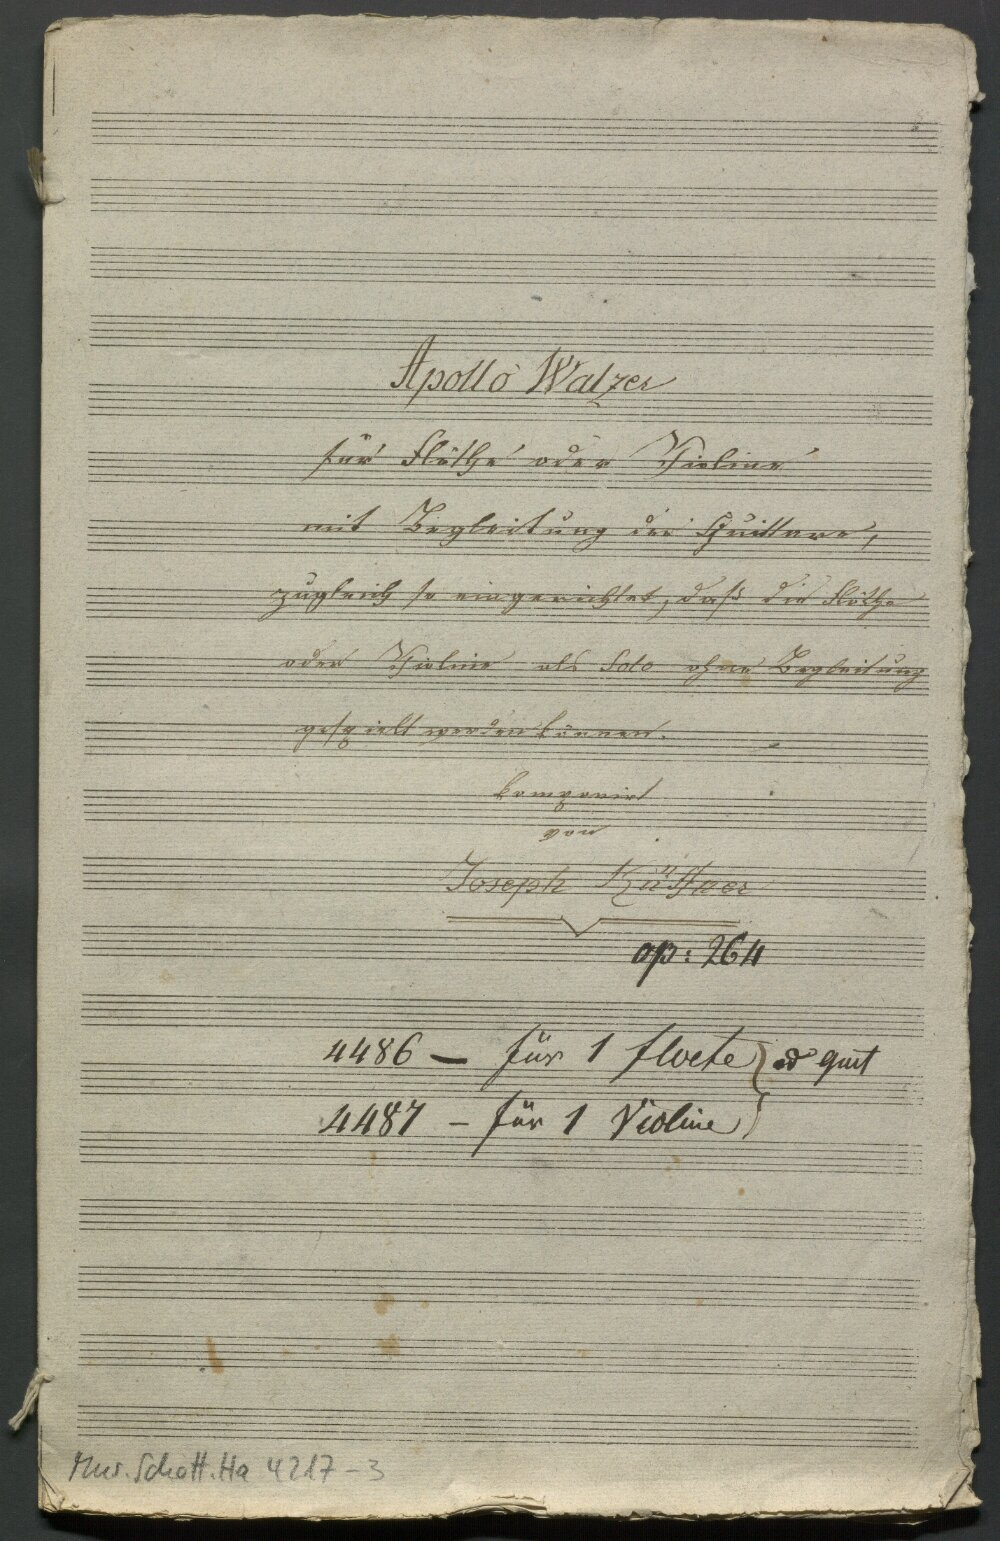 Apollo Walzer
für Flöthe oder Violine
mit Begleitung der Guittare,
zugleich so eingerichtet, daß die Flöthe
oder Violine als Solo ohne Begleitung
gespielt werden können.
komponirt
von
Joseph Küffner
op: 264
4486 — für 1 floete } od guit
4487 — für 1 Violine
Mus. Schott. Ha 4217-3